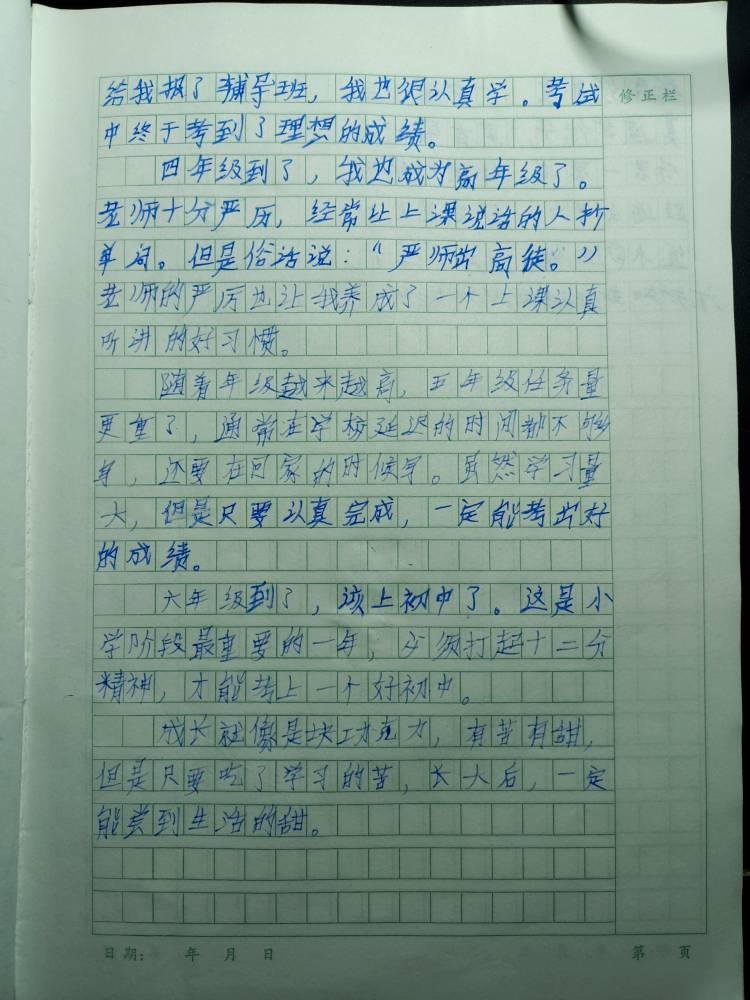 给我报了辅导班，我也很认真学。考试
修正栏
中终于考到了理想的成绩。
四年级到了，我也成为高年级了。
老师十分严历，经常让上课说话的人抄
单词。但是俗话说：“严师出高徒。”
老师的严厉也让我养成了一个上课认真
听讲的好习惯。
随着年级越来越高，五年级任务量
更重了，通常在学校延迟的时间都不够
写，还要在回家的时候写。虽然学习量
大，但是只要认真完成，一定能考出好
的成绩。
六年级到了，该上初中了。这是小
学阶段最重要的一年，必须打起十二分
精神，才能考上一个好初中。
成长就像是块巧克力，有苦有甜，
但是只要吃了学习的苦，长大后，一定
能尝到生活的甜。
日期： 年 月 日
第 页